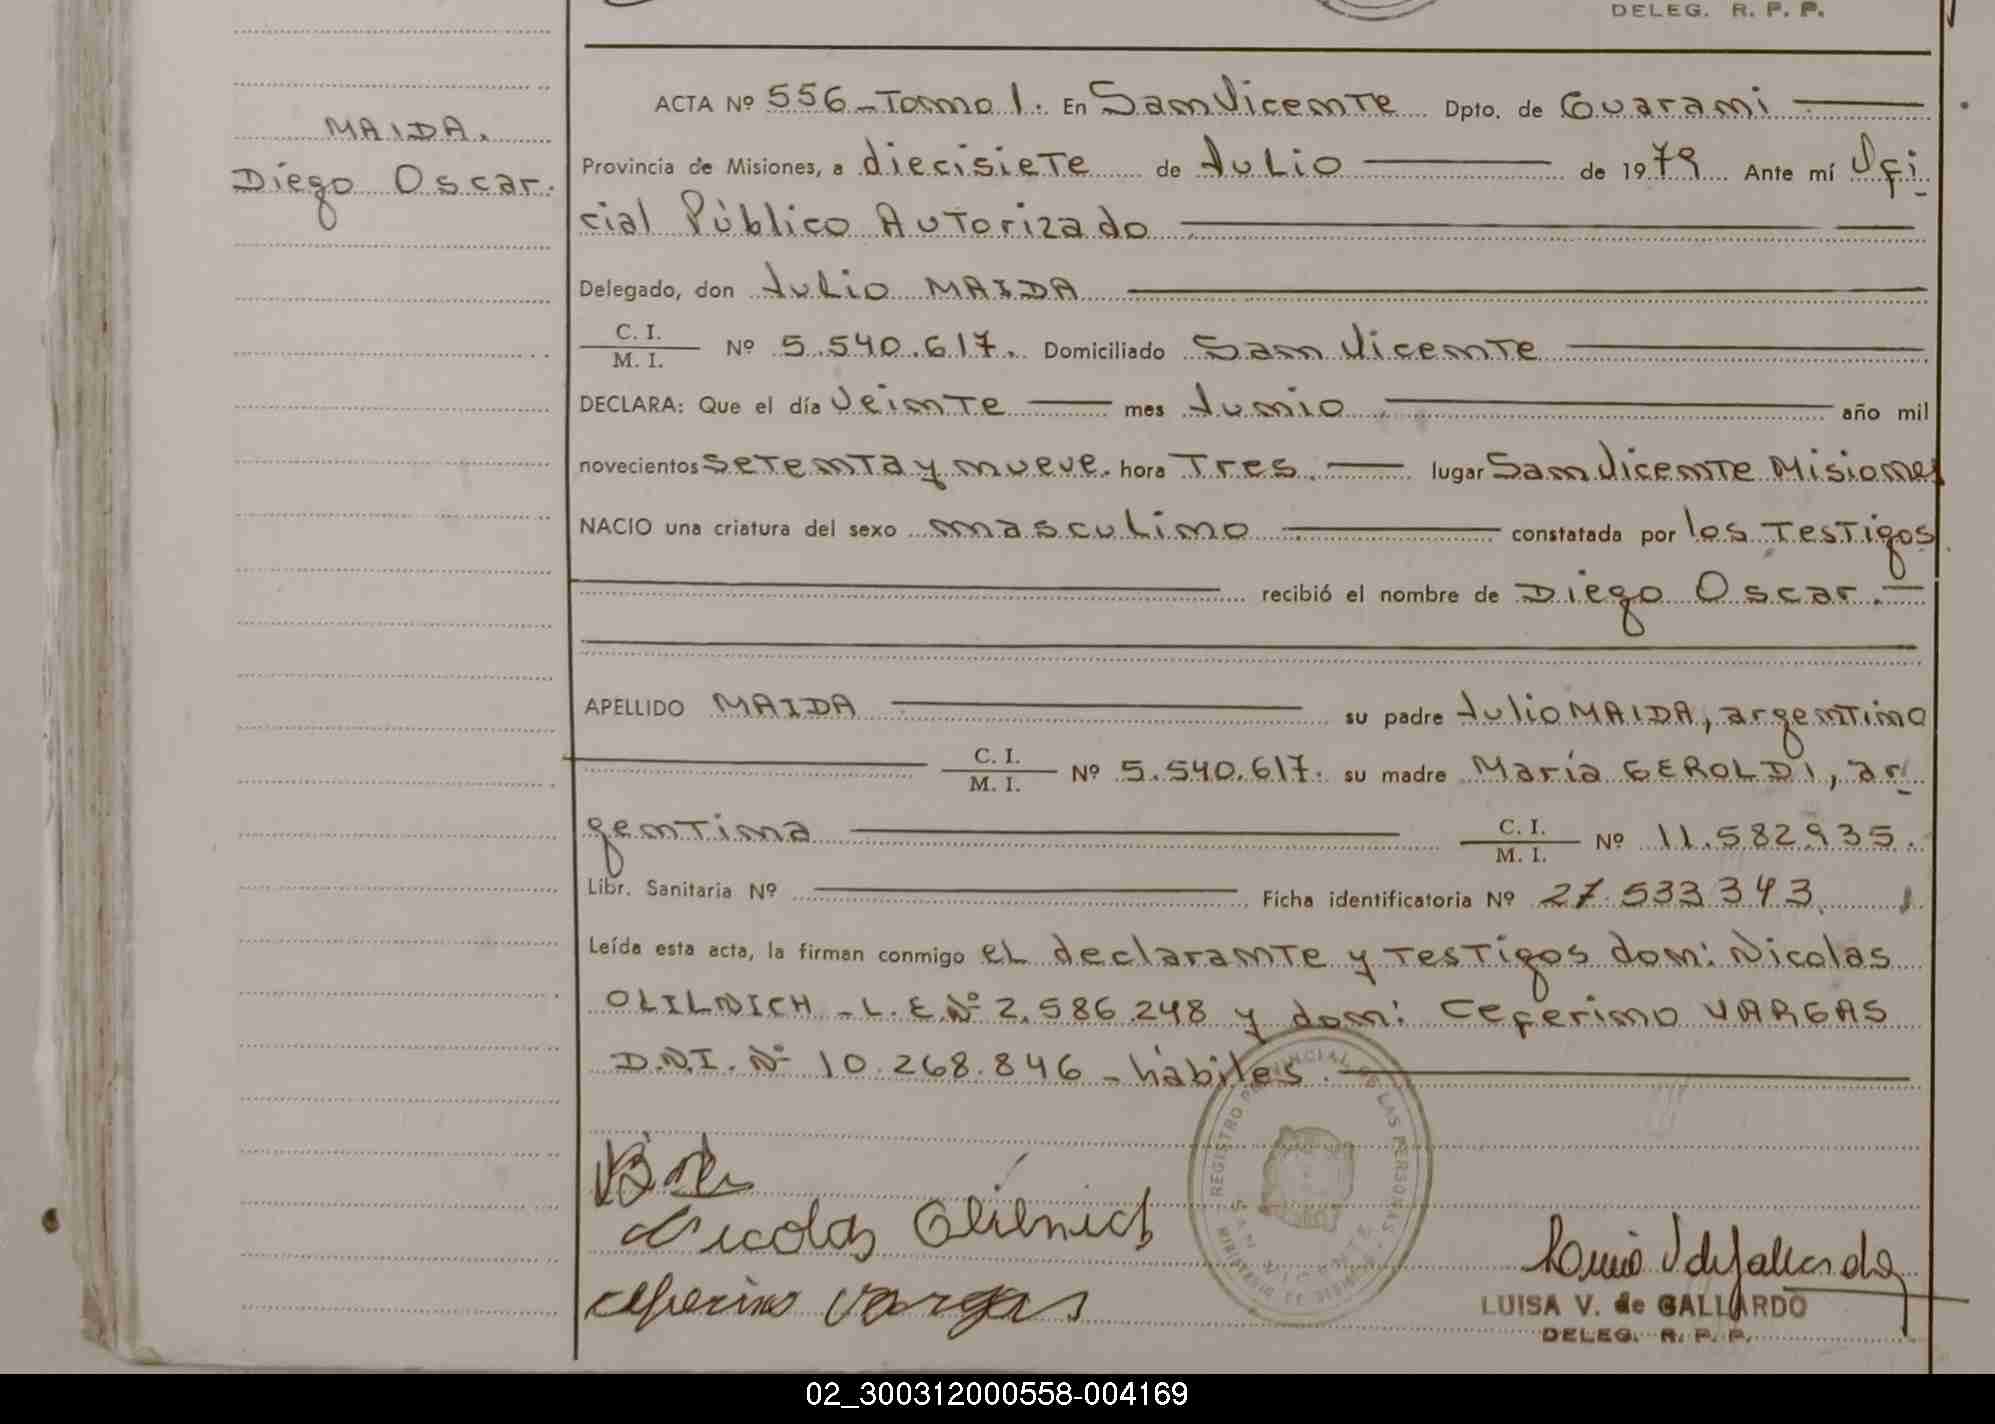 DELEG. R. P. P.
MAIDA.
Diego Oscar.
ACTA Nº 556 - Tomo 1. En San Vicente Dpto. de Guarani
Provincia de Misiones, a diecisiete de Julio de 1979 Ante mí Ofi
cial Público Autorizado
Delegado, don Julio MAIDA
C. I.
M. I. Nº 5.540.617. Domiciliado San Vicente
DECLARA: Que el día veinte mes Junio año mil
novecientos setenta y nueve. hora Tres. lugar San Vicente Misiones
NACIO una criatura del sexo masculino constatada por los Testigos
recibió el nombre de Diego Oscar.
APELLIDO MAIDA su padre Julio MAIDA, argentino
C. I.
M. I. Nº 5.540.617. su madre María GEROLDI, ar
gentina C. I.
M. I. Nº 11.582.935.
Libr. Sanitaria Nº Ficha identificatoria Nº 27.533.343
Leída esta acta, la firman conmigo el declarante y Testigos don: Nicolas
OLILNICH - L.E. Nº 2.586.248 y don: Ceferino VARGAS
D.N.I. Nº 10.268.846 - hábiles.
REGISTRO PROVINCIAL DE LAS PERSONAS
SAN VICENTE
Nicolas Olilnich
Ceferino Vargas
Luisa V de Gallardo
LUISA V. de GALLARDO
DELEG. R. P. P.
02_300312000558-004169